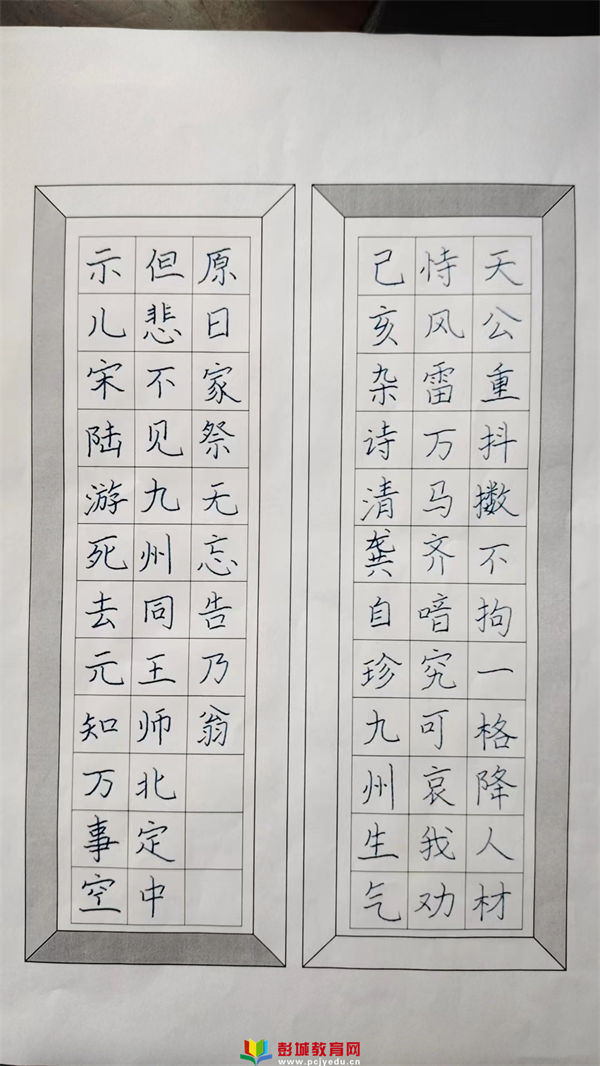 示儿宋陆游死去元知万事空
但悲不见九州同王师北定中
原日家祭无忘告乃翁
己亥杂诗清龚自珍九州生气
恃风雷万马齐喑究可哀我劝
天公重抖擞不拘一格降人材
彭城教育网
www.pcjyedu.cn